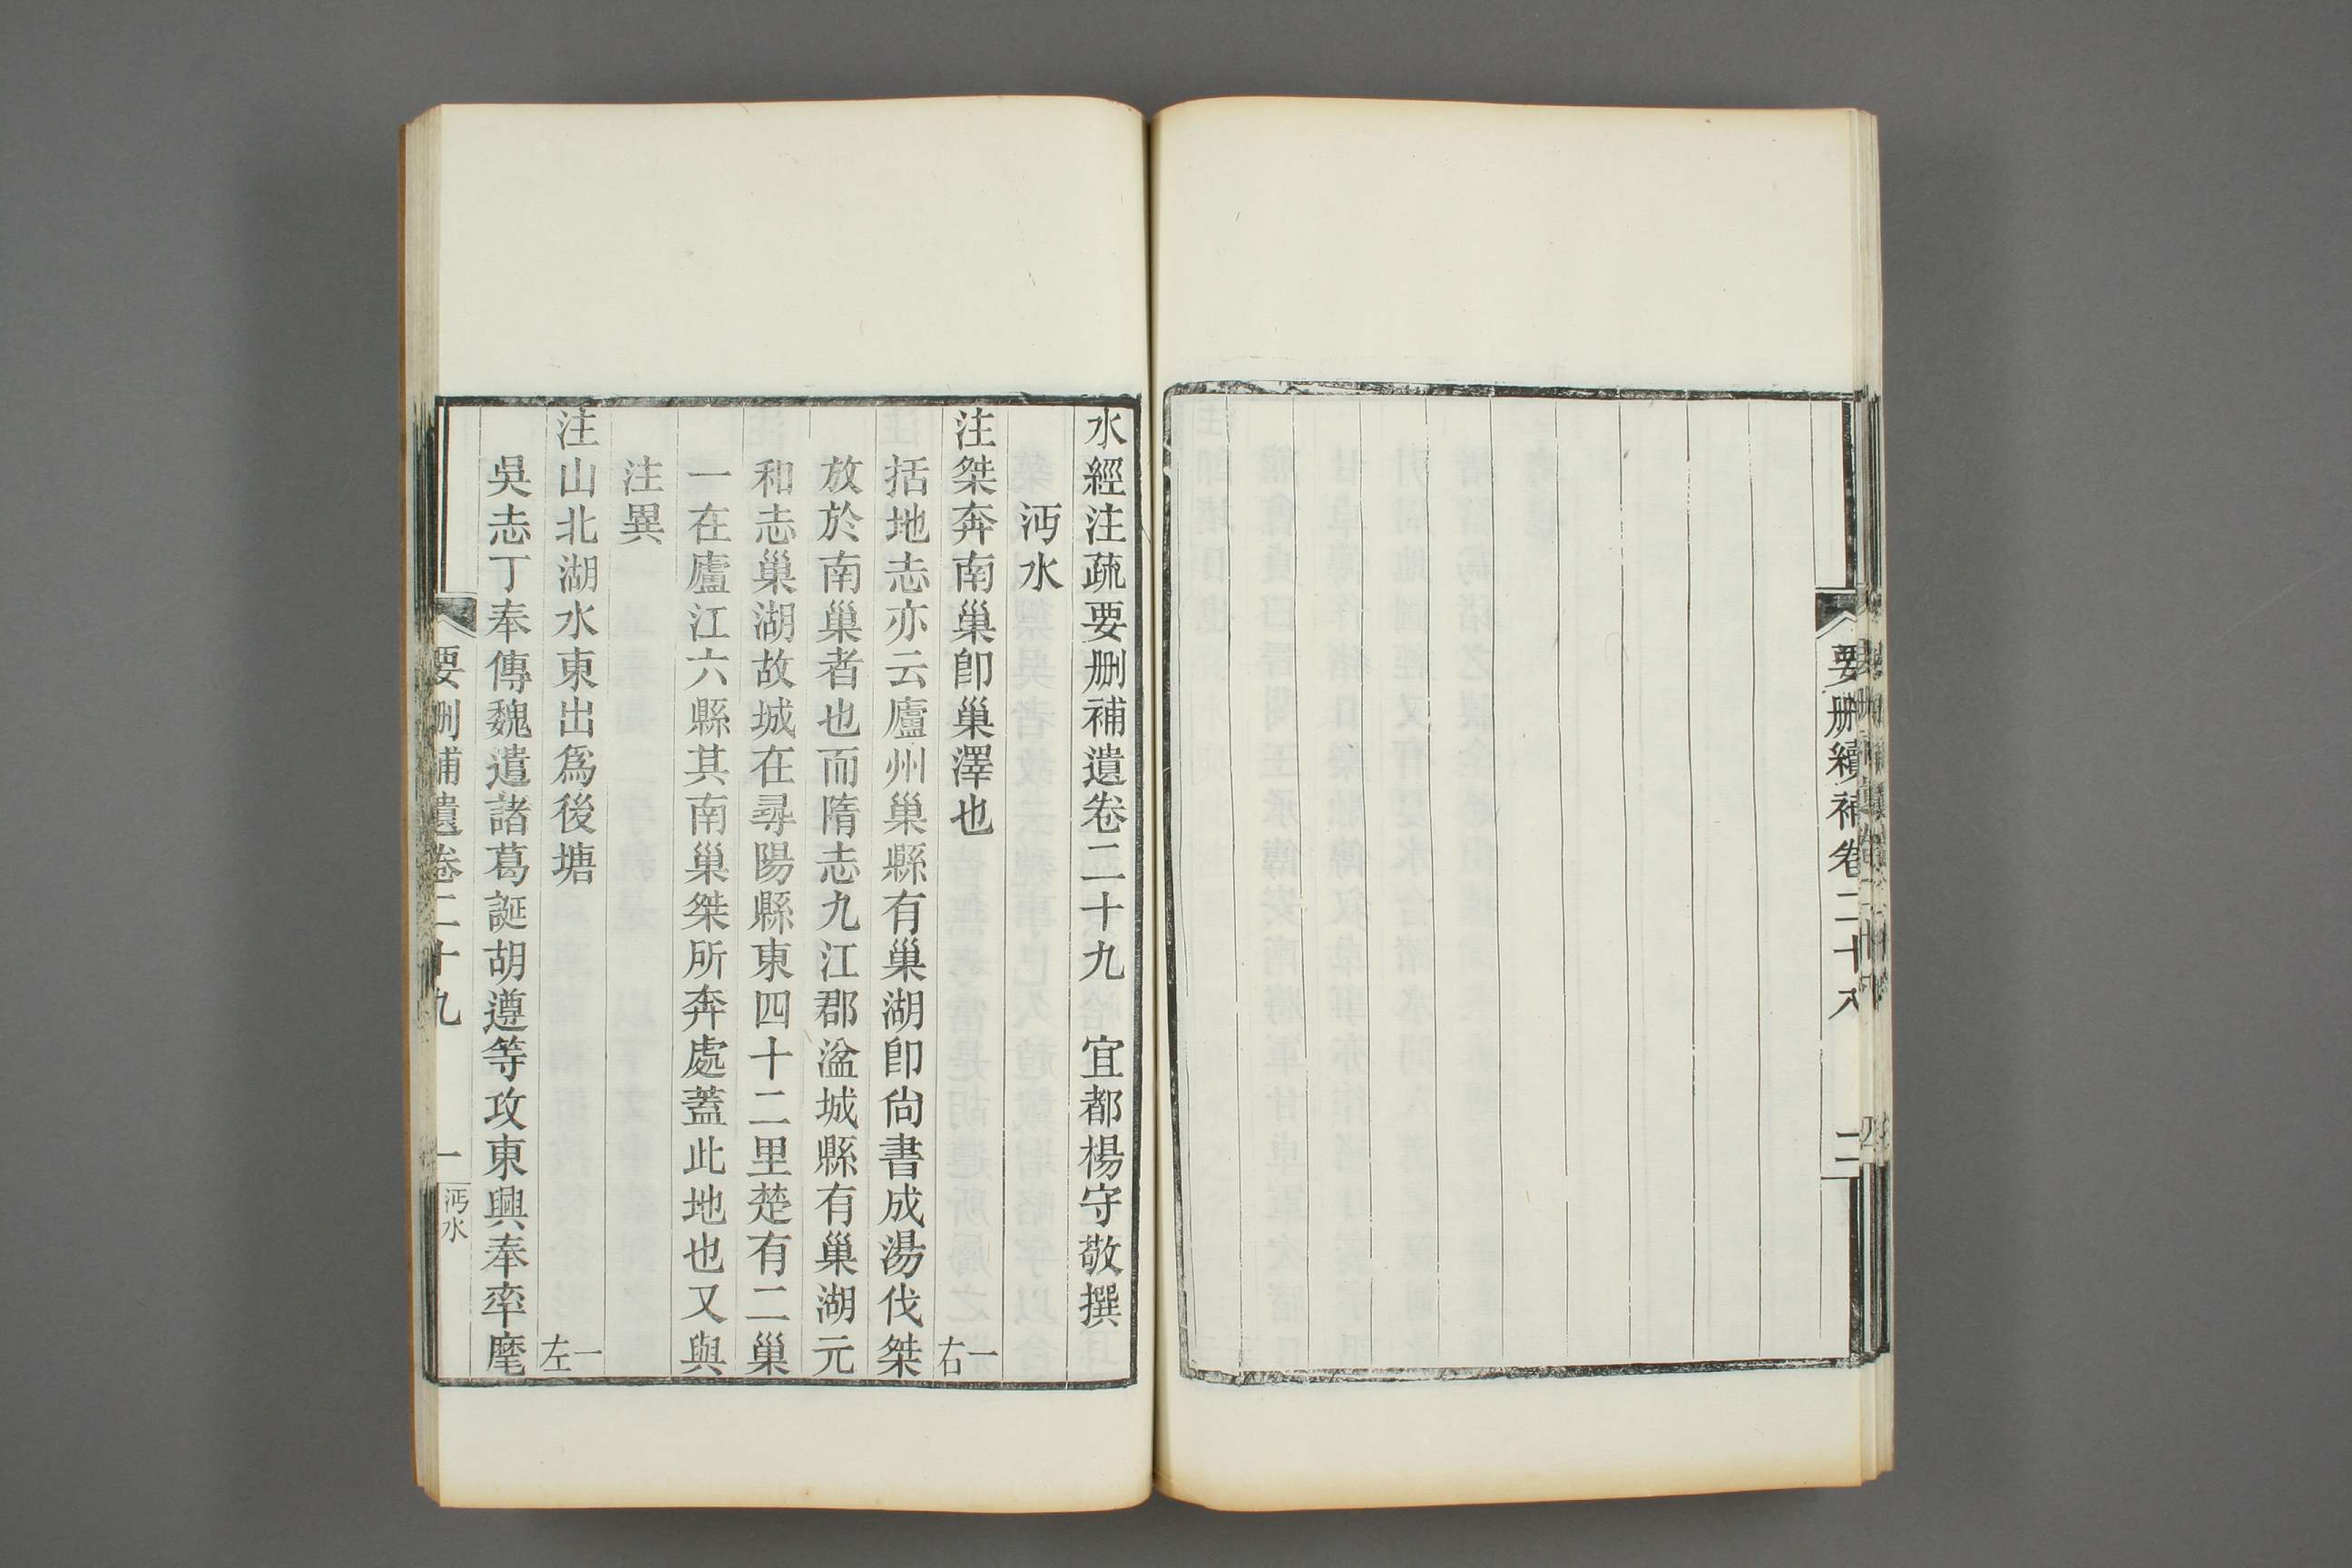 要删續補卷二十八
二
水經注疏要删補遺卷二十九　宜都楊守敬撰
沔水
注桀奔南巢卽巢澤也　一右
括地志亦云廬州巢縣有巢湖卽尙書成湯伐桀
放於南巢者也而隋志九江郡湓城縣有巢湖元
和志巢湖故城在尋陽縣東四十二里楚有二巢
一在廬江六縣其南巢桀所奔處蓋此地也又與
注異
注山北湖水東出爲後塘　一左
吳志丁奉傳魏遣諸葛誕胡遵等攻東興奉率麾
要删補遺卷二十九
一
沔水